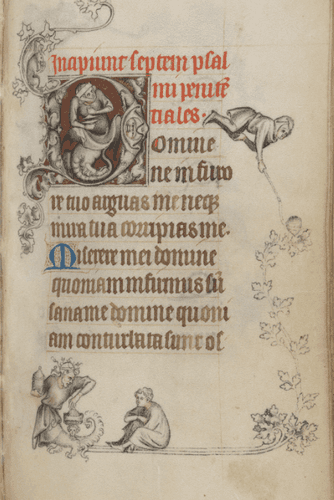 Incipiunt septem psal
mi penitē
tiales.
Domine
ne in furo
re tuo arguas me neqꝫ
in ira tua corripias me.
Miserere mei domine
quoniam infirmus sū
sana me domine quoni
am conturbata sunt os